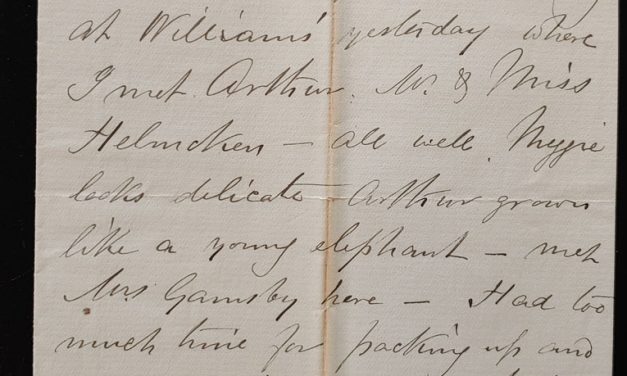 at Williams' yesterday where
I met Arthur. Mr. & Miss
Helmcken – all well.
looks delicate – Arthur grown
like a young elephant – met
Mrs Gamsby here – Had too
much time for packing up and